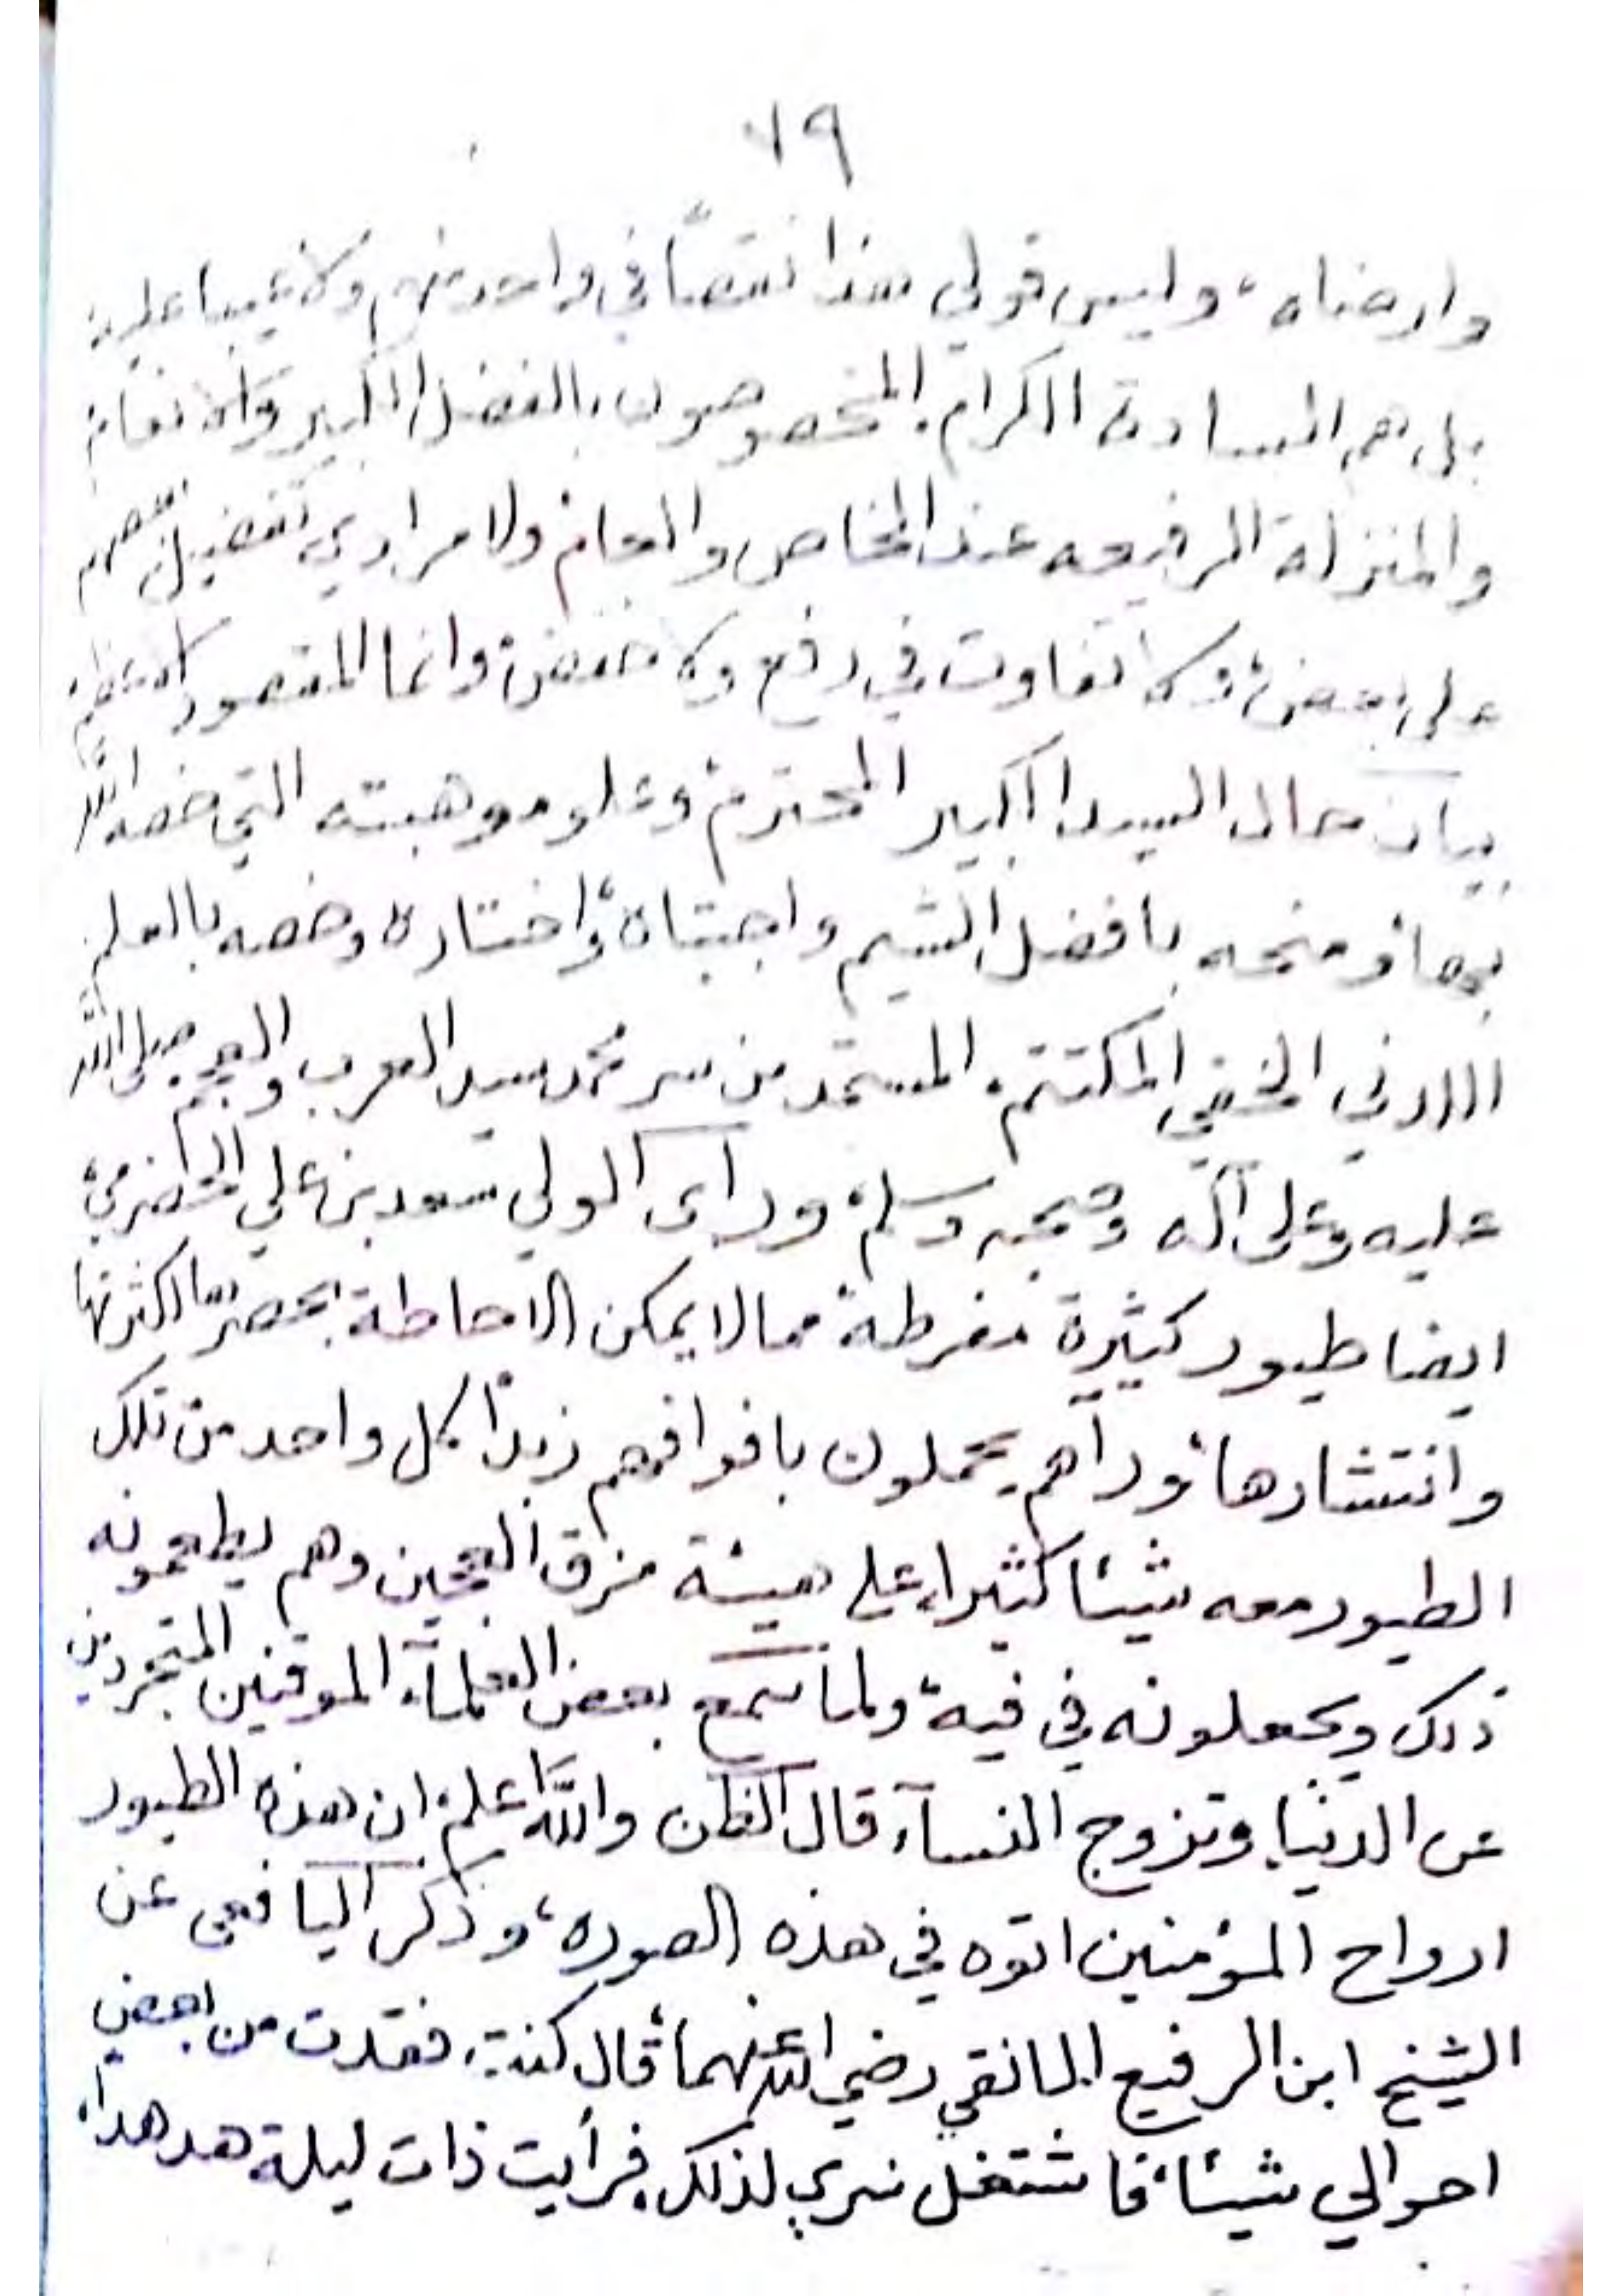 ٧٩
وارضاه، وليس قولي هذا نقصاً في واحد منهم ولا عيبا عليه
بل هم السادة الكرام. المخصوصون بالفضل الكبير والانعام
والمنزلة الرفيعه عند الخاص والعام ولا مرادي تفضيل بعضهم
على بعض، ولا تفاوت في رفع ولا خفض، وانما المقصود الاعظم
بيان حال السيد الكبير المحترم، وعلو موهبته التي خصه الله
بها، ومنحه بافضل الشيم واجتباه، واختاره وخصه بالعلم
اللدني الخفي المكتتم. المستمد من سر محمد سيد العرب والعجم صلى الله
عليه وعلى آله وصحبه وسلم، ورأى الولي سعد بن علي الحضرمي،
ايضا طيور كثيرة مفرطة مما لا يمكن الاحاطة بحصرها لكثرتها
وانتشارها، ورآهم يحملون بافواههم زبدا كل واحد من تلك
الطيور معه شيئا كثيرا، على هيئة مزق العجين وهم يطعمونه
ذلك ويجعلونه في فيه، ولما سمع بعض العلمآء الموقنين المتجردين
عن الدنيا، وتزوج النسآء، قال الظن والله اعلم، ان هذه الطيور
ارواح المؤمنين اتوه في هذه الصوره، وذكر اليافعي عن
الشيخ ابن الرفيع المانقي رضي الله عنهما، قال كنت، فقدت من بعض
احوالي شيئا، فاشتغل سري لذلك، فرأيت ذات ليلة هدهدا،